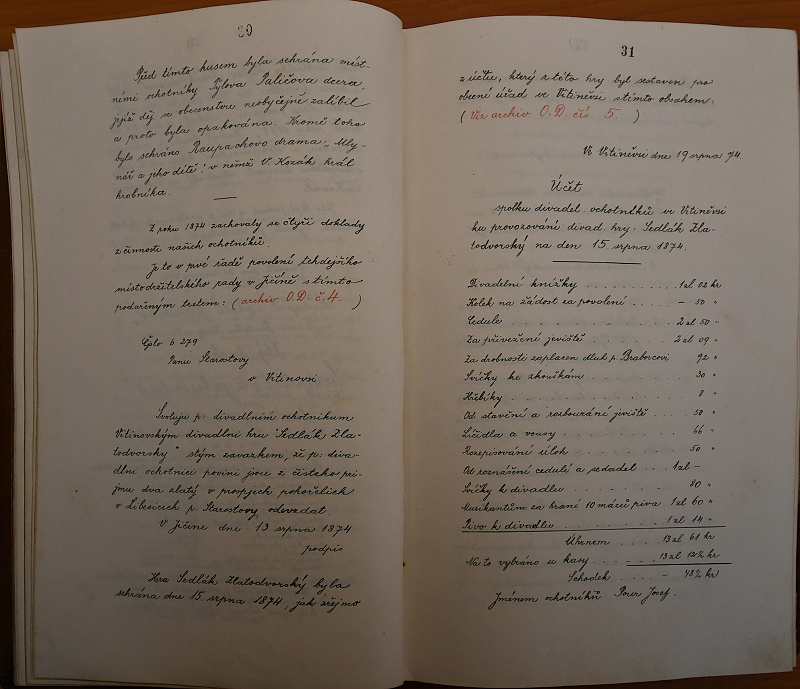 30
Před tímto kusem byla sehrána míst-
ními ochotníky Tylova Paličova dcera,
jejíž děj se obecenstvu neobyčejně zalíbil
a proto byla opakována. Kromě toho
bylo sehráno Raupachovo drama: „Mly-
nář a jeho dítě", v němž V. Kozák hrál
hrobníka.
Z roku 1874 zachovaly se čtyři doklady
z činnosti našich ochotníků.
Je to v prvé řadě povolení tehdejšího
místodržitelského rady v Jičíně s tímto
podařeným textem: (archiv O.D. č. 4. )
Číslo 6279
Panu Starostovy
v Vitinovsi
Svoluju p: divadlním ochotníkum
Vitinovským divadlní hru "Sedlák Zla-
todvorský" stým zavazkem, že p: diva-
dlní ochotnici povini jsou z čisteho pri-
jmu dva zlatý v prospjech pohořelich
v Libesicich p: Starostovy odevzdat.
V Jičine dne 13 srpna 1874
podpis
Hra Sedlák Zlatodvorský byla
sehrána dne 15 srpna 1874, jak zřejmo
31
z účtu, který z této hry byl sestaven pro
obecní úřad ve Vitiněvsi s tímto obsahem:
(Viz archiv O.D. čís. 5. )
Ve Vitiněvsi dne 19 srpna 74.
Účet
spolku divadel. ochotníků ve Vitiněvsi
ku provozování divad. hry: Sedlák Zla-
todvorský na den 15. srpna 1874.
Divadelní knížky . . . . 1 zl 02 kr
Kolek na žádost za povolení . . . - 50 "
Cedule . . . . 2 zl 50 "
Za přivežení jeviště . . . . 2 zl 09 "
Za drobnosti zaplacen dluh p. Braborcovi 92 "
Svíčky ke zkouškám . . . . 30 "
Hřebíky . . . . 8 "
Od stavění a rozbourání jeviště . . . . 50 "
Líčidla a vousy . . . . 66 "
Rozepisování úloh . . . . 50 "
Od roznášení cedulí a sedadel . . . 1 zl -
Svíčky k divadlu . . . . 80 "
Musikantům za hraní 10 mázů piva 1 zl 60 "
Pivo k divadlu . . . . 1 zl 14 "
Úhrnem . . . 13 zl 61 kr
Na to vybráno u kasy . . . 13 zl 12½ kr
Schodek . . . - 48½ kr
Jménem ochotníků Pour Josef.